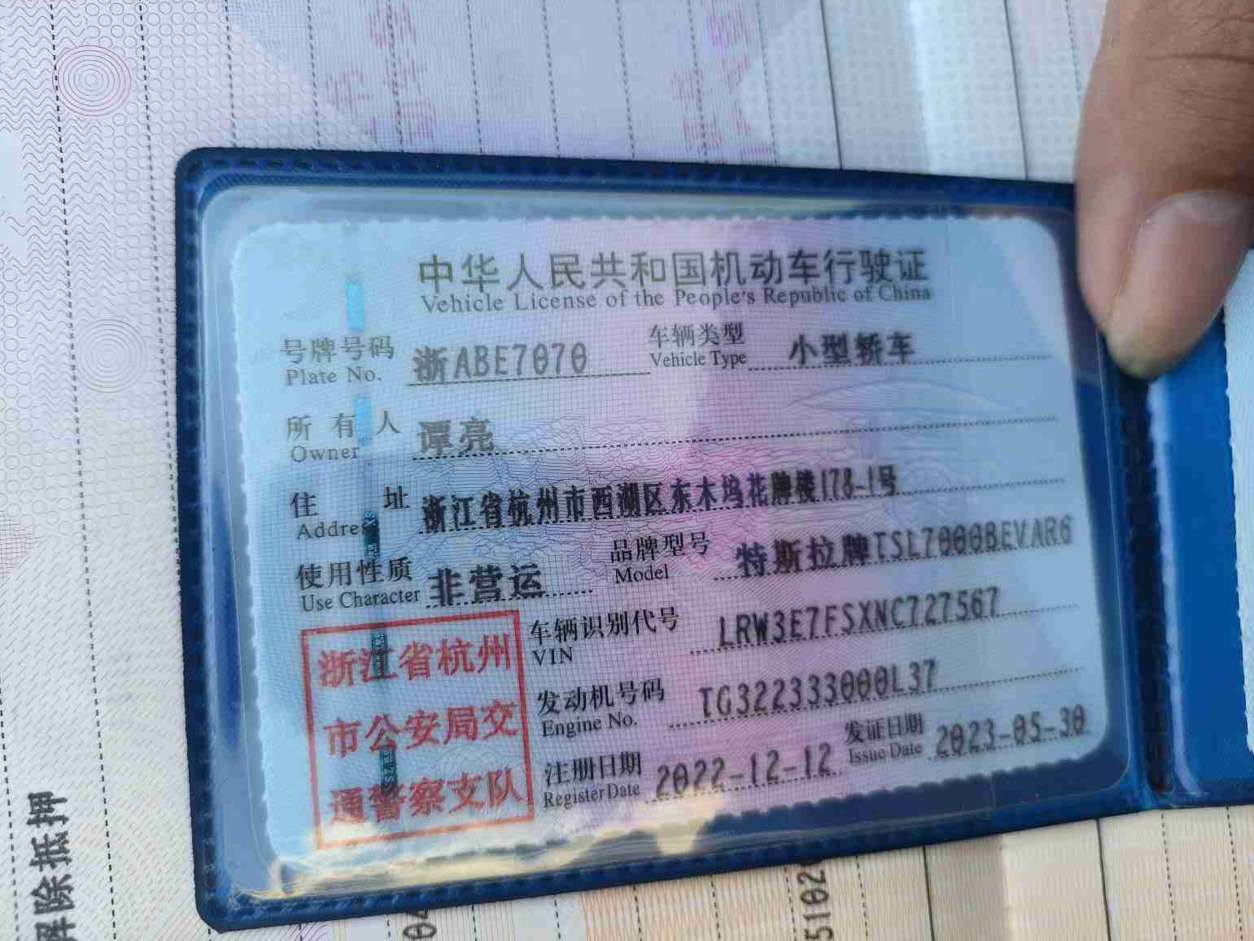 中华人民共和国机动车行驶证
Vehicle License of the People's Republic of China
号牌号码 浙ABE7070 车辆类型 小型轿车
Plate No. Vehicle Type
所有人 谭亮
Owner
住址 浙江省杭州市西湖区东木坞花牌楼178-1号
Address
使用性质 非营运 品牌型号 特斯拉牌TSL7000BEVAR6
Use Character Model
车辆识别代号 LRW3E7FSXNC727567
VIN
发动机号码 TG322333000L37
Engine No.
注册日期 2022-12-12 发证日期 2023-05-30
Register Date Issue Date
浙江省杭州
市公安局交
通警察支队
解除抵押